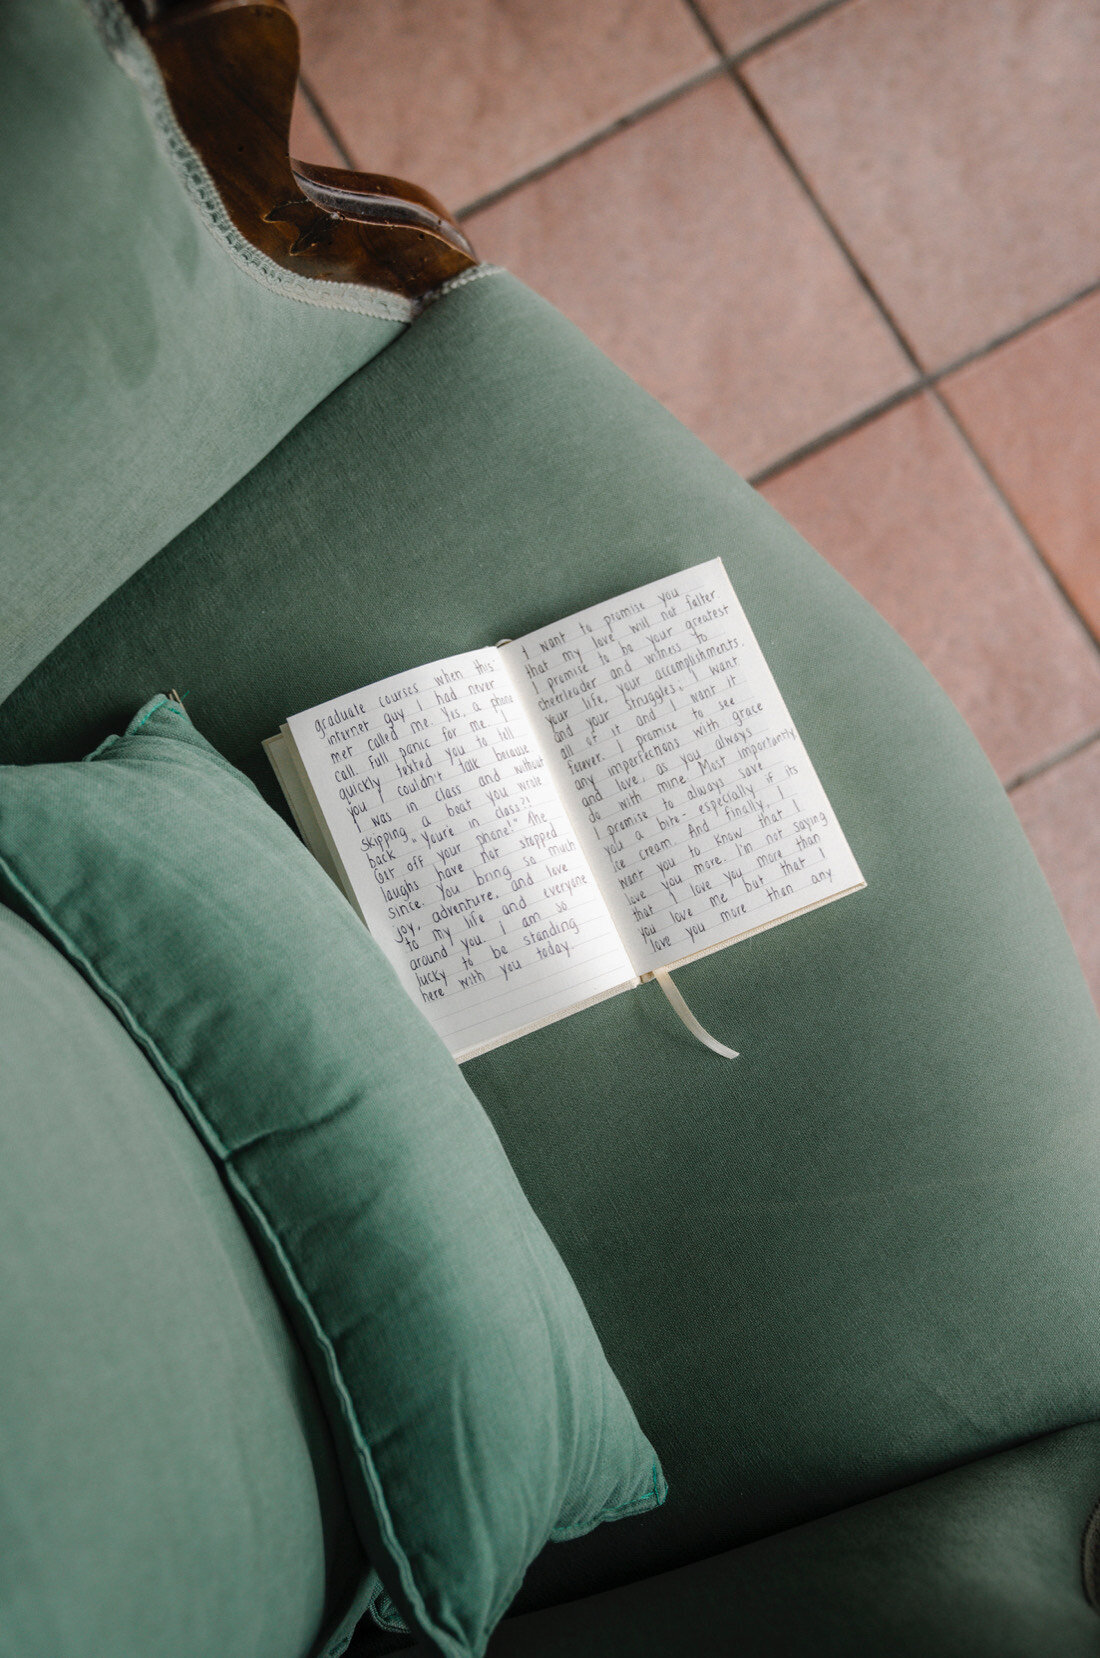 graduate courses when this
internet guy I had never
met called me. Yes, a phone
call. Full panic for me. I
quickly texted you to tell
you I couldn't talk because
I was in class and without
skipping a beat you wrote
back "You're in class?!
Get off your phone!" The
laughs have not stopped
since. You bring so much
joy, adventure, and love
to my life and everyone
around you. I am so
lucky to be standing
here with you today.
I want to promise you
that my love will not falter.
I promise to be your greatest
cheerleader and witness to
your life, your accomplishments,
and your struggles. I want
all of it and I want it
forever. I promise to see
any imperfections with grace
and love, as you always
do with mine. Most importantly
I promise to always save
you a bite - especially if its
ice cream. And finally, I
want you to know that I
love you more. I'm not saying
that I love you more than
you love me but that I
love you more than any